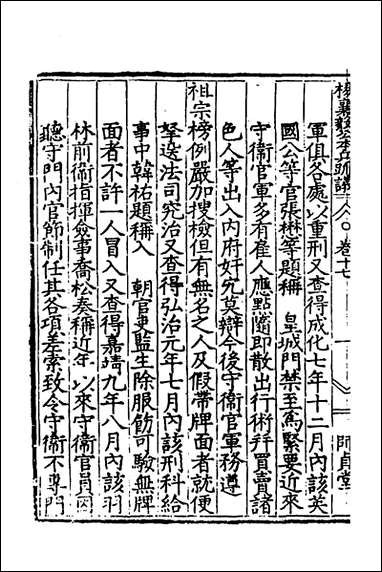 楊襄毅公本兵疏議 八〇 卷十七
師貞堂
軍俱各處以重刑又查得成化七年十二月內該英
國公等官張懋等題稱 皇城門禁至爲緊要近來
守衛官軍多有雇人應點隨即散出行術并買賣諸
色人等出入內府奸宄莫辯今後守衛官軍務遵
祖宗榜例嚴加搜檢但有無名之人及假帶牌面者就便
拏送法司究治又查得弘治元年七月內該刑科給
事中韓祐題稱入 朝官吏監生除服飭可驗無牌
面者不許一人冒入又查得嘉靖九年八月內該羽
林前衛指揮僉事喬松奏稱近年以來守衛官員因
聽守門內官節制任其各項差索致令守衛不專門